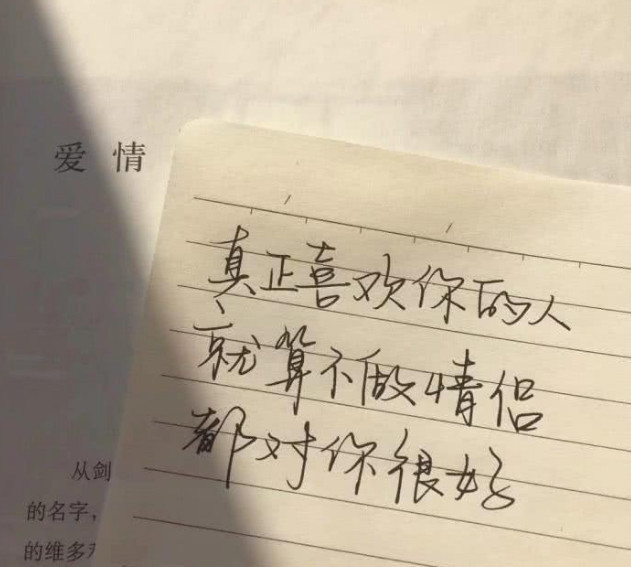 爱情
真正喜欢你的人
就算不做情侣
都对你很好
从剑
的名字，
的维多